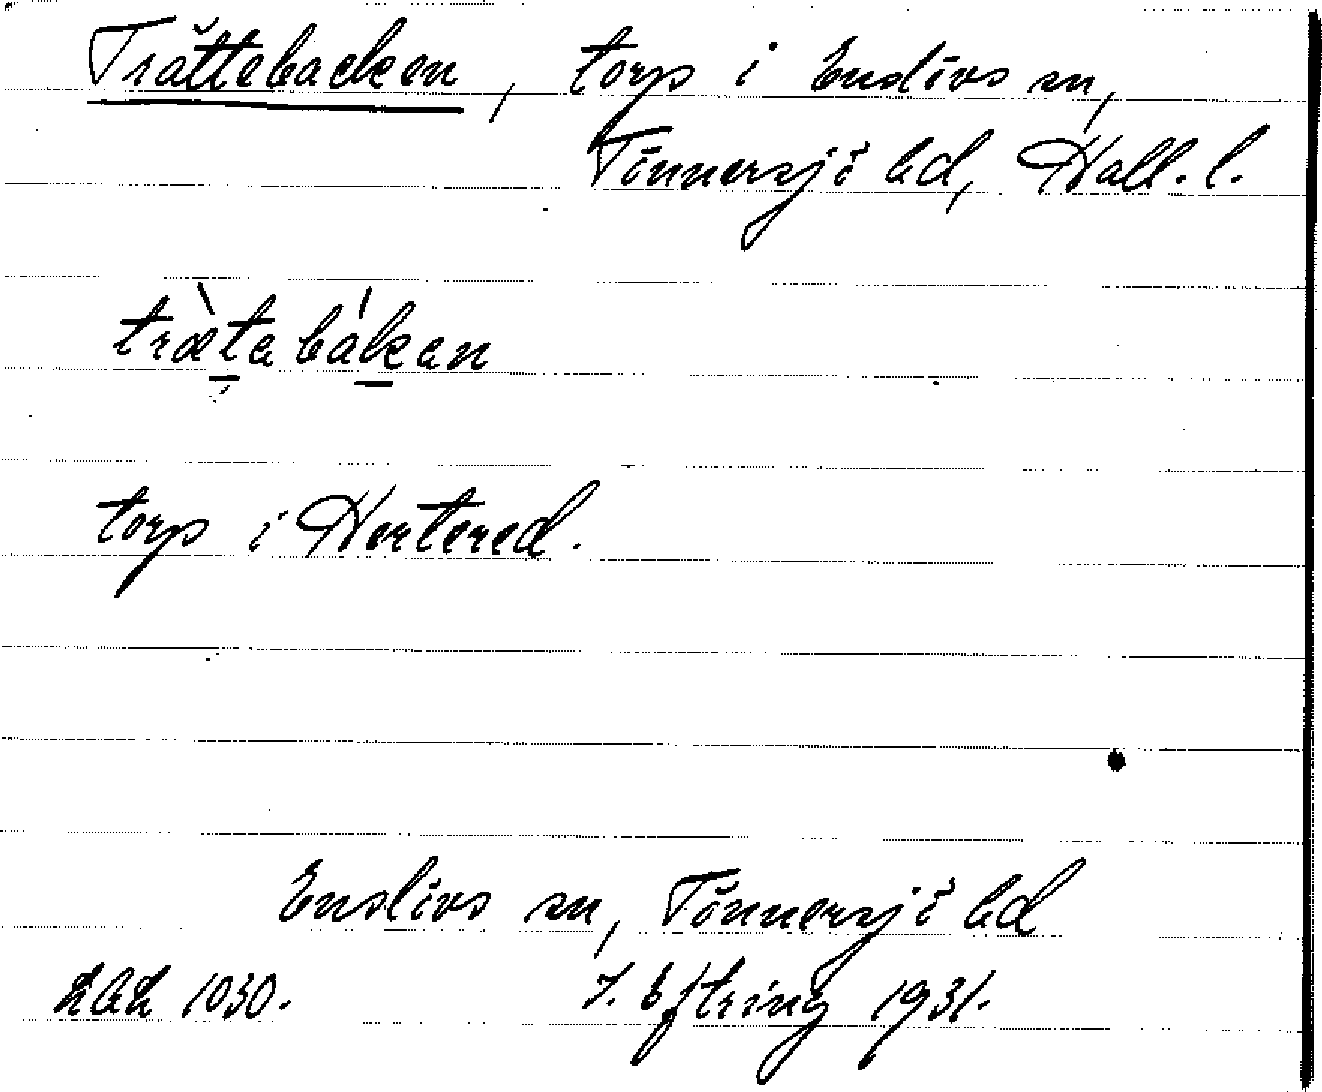 Trättebacken, torp i Enslövs sn,
Tönnersjö hd, Hall. l.
trætabákan
torp i Hertered.
Enslövs sn, Tönnersjö hd
1030. J. Eftring 1931.